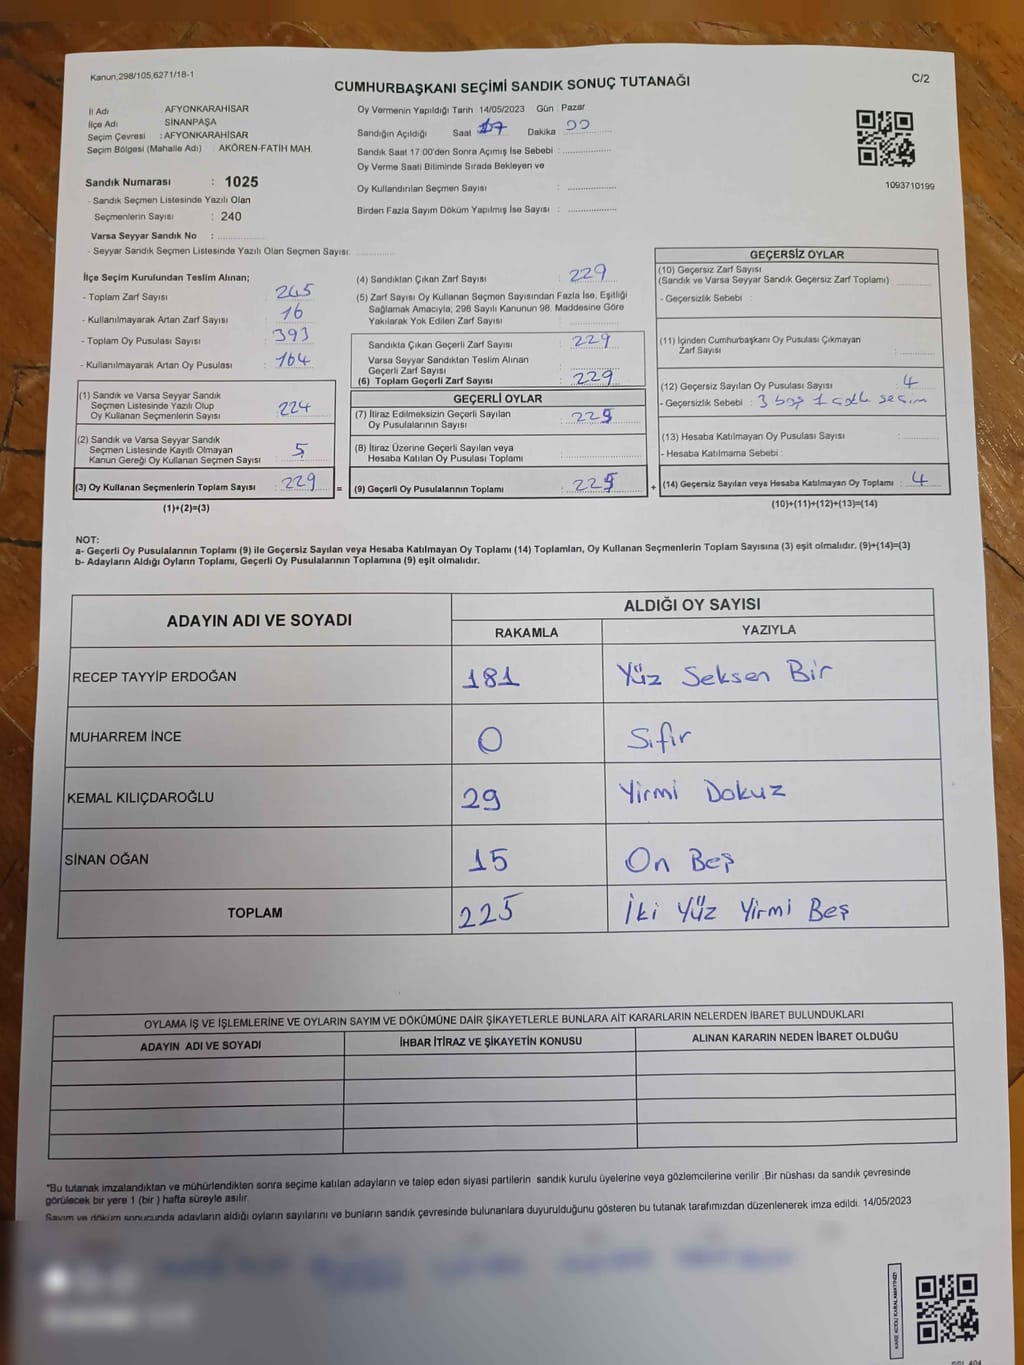 Kanun;298/105,6271/18-1
C/2
CUMHURBAŞKANI SEÇİMİ SANDIK SONUÇ TUTANAĞI
İl Adı AFYONKARAHİSAR
İlçe Adı SİNANPAŞA
Seçim Çevresi : AFYONKARAHİSAR
Seçim Bölgesi (Mahalle Adı) : AKÖREN-FATİH MAH.
Sandık Numarası : 1025
- Sandık Seçmen Listesinde Yazılı Olan
Seçmenlerin Sayısı : 240
Varsa Seyyar Sandık No :
- Seyyar Sandık Seçmen Listesinde Yazılı Olan Seçmen Sayısı:
Oy Vermenin Yapıldığı Tarih 14/05/2023 Gün : Pazar
Sandığın Açıldığı Saat 17 Dakika 00
Sandık Saat 17:00'den Sonra Açılmış İse Sebebi :
Oy Verme Saati Bitiminde Sırada Bekleyen ve
Oy Kullandırılan Seçmen Sayısı :
Birden Fazla Sayım Döküm Yapılmış İse Sayısı :
1093710199
İlçe Seçim Kurulundan Teslim Alınan;
- Toplam Zarf Sayısı : 245
- Kullanılmayarak Artan Zarf Sayısı : 16
- Toplam Oy Pusulası Sayısı : 393
- Kullanılmayarak Artan Oy Pusulası : 164
(1) Sandık ve Varsa Seyyar Sandık
Seçmen Listesinde Yazılı Olup
Oy Kullanan Seçmenlerin Sayısı : 224
(2) Sandık ve Varsa Seyyar Sandık
Seçmen Listesinde Kayıtlı Olmayan
Kanun Gereği Oy Kullanan Seçmen Sayısı : 5
(3) Oy Kullanan Seçmenlerin Toplam Sayısı : 229
(1)+(2)=(3)
(4) Sandıktan Çıkan Zarf Sayısı : 229
(5) Zarf Sayısı Oy Kullanan Seçmen Sayısından Fazla İse, Eşitliği
Sağlamak Amacıyla; 298 Sayılı Kanunun 98. Maddesine Göre
Yakılarak Yok Edilen Zarf Sayısı :
Sandıkta Çıkan Geçerli Zarf Sayısı : 229
Varsa Seyyar Sandıktan Teslim Alınan
Geçerli Zarf Sayısı :
(6) Toplam Geçerli Zarf Sayısı : 229
GEÇERLİ OYLAR
(7) İtiraz Edilmeksizin Geçerli Sayılan
Oy Pusulalarının Sayısı : 225
(8) İtiraz Üzerine Geçerli Sayılan veya
Hesaba Katılan Oy Pusulası Toplamı :
= (9) Geçerli Oy Pusulalarının Toplamı : 225 +
GEÇERSİZ OYLAR
(10) Geçersiz Zarf Sayısı
(Sandık ve Varsa Seyyar Sandık Geçersiz Zarf Toplamı) :
- Geçersizlik Sebebi :
(11) İçinden Cumhurbaşkanı Oy Pusulası Çıkmayan
Zarf Sayısı :
(12) Geçersiz Sayılan Oy Pusulası Sayısı : 4
- Geçersizlik Sebebi : 3 boş 1 seçim
(13) Hesaba Katılmayan Oy Pusulası Sayısı :
- Hesaba Katılmama Sebebi :
(14) Geçersiz Sayılan veya Hesaba Katılmayan Oy Toplamı : 4
(10)+(11)+(12)+(13)=(14)
NOT:
a- Geçerli Oy Pusulalarının Toplamı (9) ile Geçersiz Sayılan veya Hesaba Katılmayan Oy Toplamı (14) Toplamları, Oy Kullanan Seçmenlerin Toplam Sayısına (3) eşit olmalıdır. (9)+(14)=(3)
b- Adayların Aldığı Oyların Toplamı, Geçerli Oy Pusulalarının Toplamına (9) eşit olmalıdır.
ADAYIN ADI VE SOYADI
ALDIĞI OY SAYISI
RAKAMLA YAZIYLA
RECEP TAYYİP ERDOĞAN 181 Yüz Seksen Bir
MUHARREM İNCE 0 Sıfır
KEMAL KILIÇDAROĞLU 29 Yirmi Dokuz
SİNAN OĞAN 15 On Beş
TOPLAM 225 İki Yüz Yirmi Beş
OYLAMA İŞ VE İŞLEMLERİNE VE OYLARIN SAYIM VE DÖKÜMÜNE DAİR ŞİKAYETLERLE BUNLARA AİT KARARLARIN NELERDEN İBARET BULUNDUKLARI
ADAYIN ADI VE SOYADI İHBAR İTİRAZ VE ŞİKAYETİN KONUSU ALINAN KARARIN NEDEN İBARET OLDUĞU
*Bu tutanak imzalandıktan ve mühürlendikten sonra seçime katılan adayların ve talep eden siyasi partilerin sandık kurulu üyelerine veya gözlemcilerine verilir. Bir nüshası da sandık çevresinde
görülecek bir yere 1 (bir) hafta süreyle asılır.
Sayım ve döküm sonucunda adayların aldığı oyların sayılarını ve bunların sandık çevresinde bulunanlara duyurulduğunu gösteren bu tutanak tarafımızdan düzenlenerek imza edildi. 14/05/2023